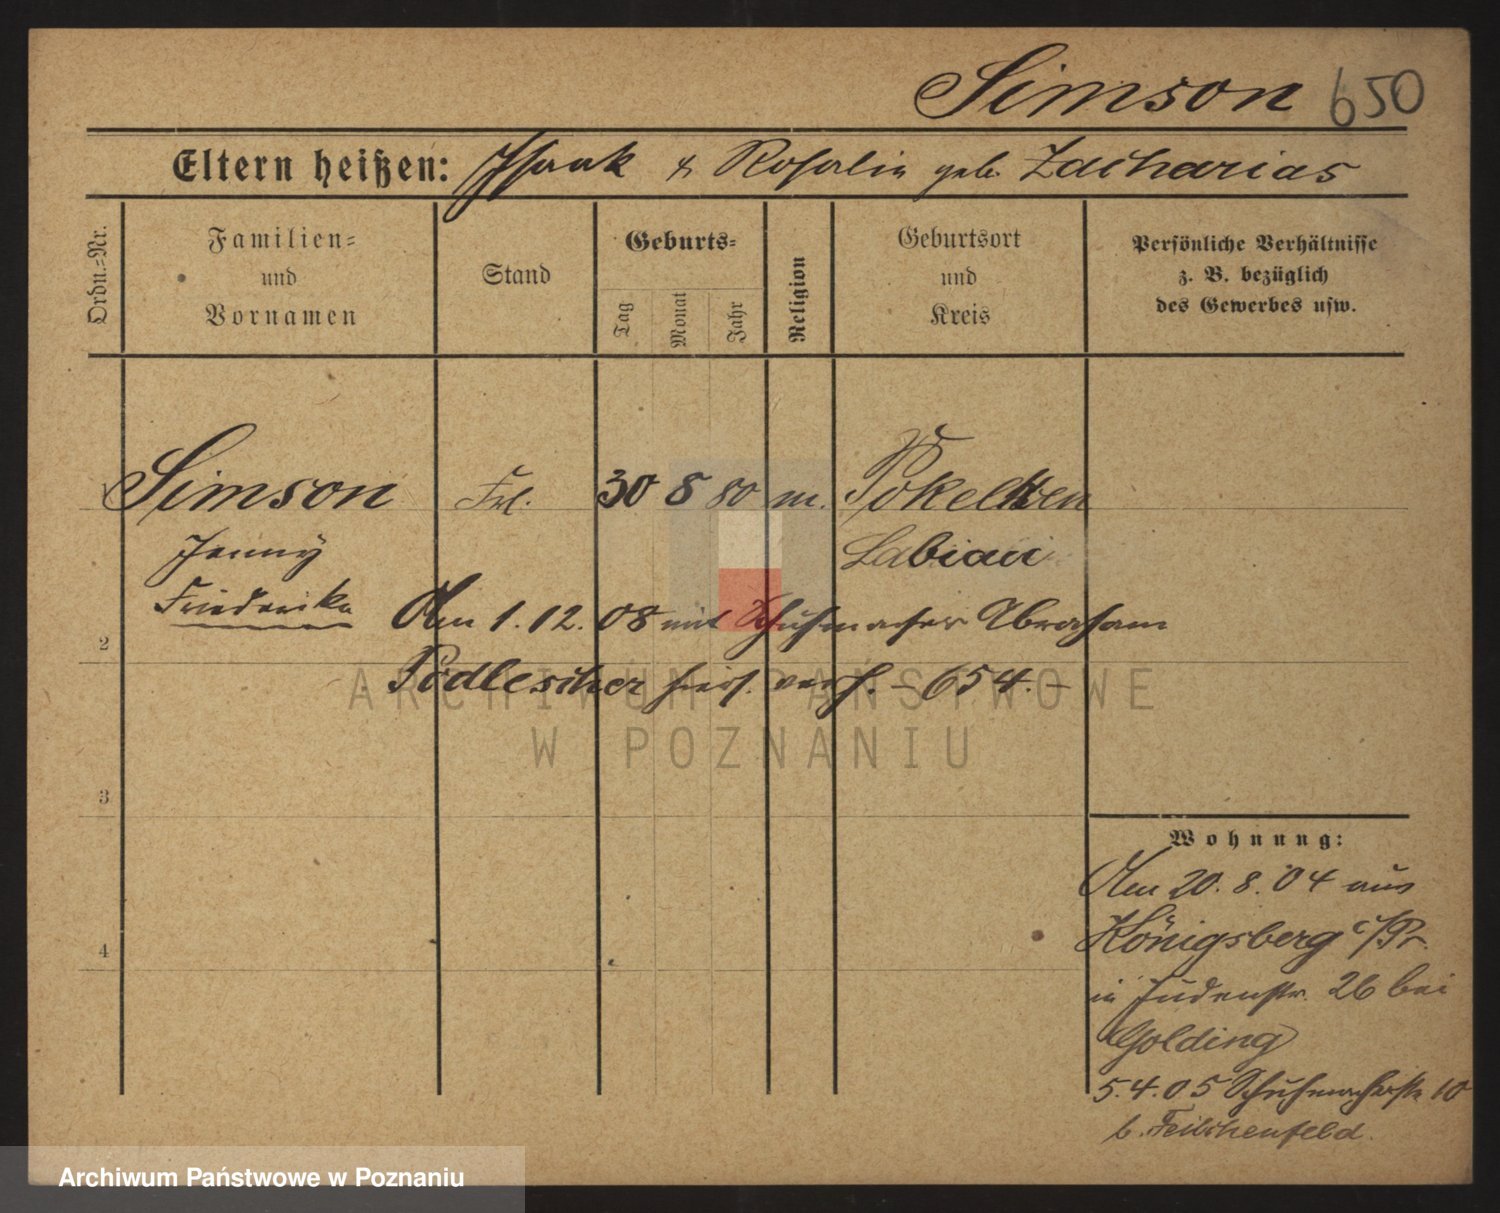 Simson 650
Eltern heißen: Isaak & Rosalie geb. Zacharias
Ordn.-Nr.
Familien-
und
Vornamen
Stand
Geburts-
Tag
Monat
Jahr
Religion
Geburtsort
und
Kreis
Persönliche Verhältnisse
z. B. bezüglich
des Gewerbes usw.
Simson Frl. 30 8 80 m. Pokelken
Jenny Labiau
Friederike
Am 1. 12. 08 mit Schuhmacher Abraham
2
Podlescher hier verh. - 654. -
ARCHIWUM PAŃSTWOWE
W POZNANIU
3
Wohnung:
Am 20. 8. 04 aus
Königsberg /Pr.
4
in Judenstr. 26 bei
Golding
5. 4. 05 Schuhmacherstr 10
b. Feilchenfeld.
Archiwum Państwowe w Poznaniu